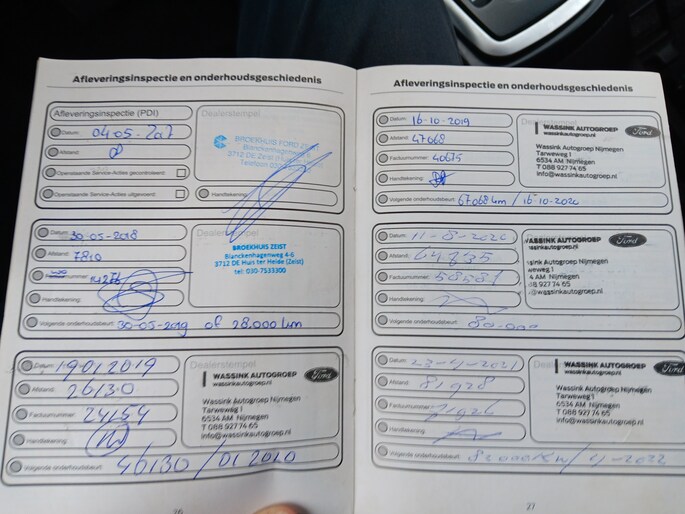 Afleveringsinspectie en onderhoudsgeschiedenis
Afleveringsinspectie (PDI)
Dealerstempel
Datum: 04-05-2017
Afstand:
BROEKHUIS FORD ZEIST
Blanckenhagenweg
3712 DE Zeist
Telefoon
Openstaande Service-Acties gecontroleerd:
Openstaande Service-Acties uitgevoerd:
Handtekening:
Datum: 30-05-2018
Dealerstempel
Afstand: 7810
BROEKHUIS ZEIST
Blanckenhagenweg 4-6
3712 DE Huis ter Heide (Zeist)
tel: 030-7533300
Handtekening:
Volgende onderhoudsbeurt: 30-05-2019 of 28.000 km
Datum: 19-01 2019
Dealerstempel
WASSINK AUTOGROEP
wassinkautogroep.nl
Ford
Afstand: 26130
Factuurnummer: 24154
Wassink Autogroep Nijmegen
Tarweweg 1
6534 AM Nijmegen
T 088 927 74 65
info@wassinkautogroep.nl
Handtekening:
Volgende onderhoudsbeurt: 46130 / 01 2020
26
Afleveringsinspectie en onderhoudsgeschiedenis
Datum: 16-10-2019
WASSINK AUTOGROEP
wassinkautogroep.nl
Ford
Afstand: 47068
Factuurnummer: 40675
Wassink Autogroep Nijmegen
Tarweweg 1
6534 AM Nijmegen
T 088 927 74 65
info@wassinkautogroep.nl
Handtekening:
Volgende onderhoudsbeurt: 67068 km / 16-10-2020
Datum: 11-8-2020
WASSINK AUTOGROEP
wassinkautogroep.nl
Ford
Afstand:
Factuurnummer: 58581
Wassink Autogroep Nijmegen
Handtekening:
Volgende onderhoudsbeurt: 80.000
Datum: 23-4-2021
WASSINK AUTOGROEP
wassinkautogroep.nl
Ford
Afstand: 81928
Factuurnummer: 71926
Wassink Autogroep Nijmegen
Tarweweg 1
6534 AM Nijmegen
T 088 927 74 65
info@wassinkautogroep.nl
Handtekening:
Volgende onderhoudsbeurt:
27